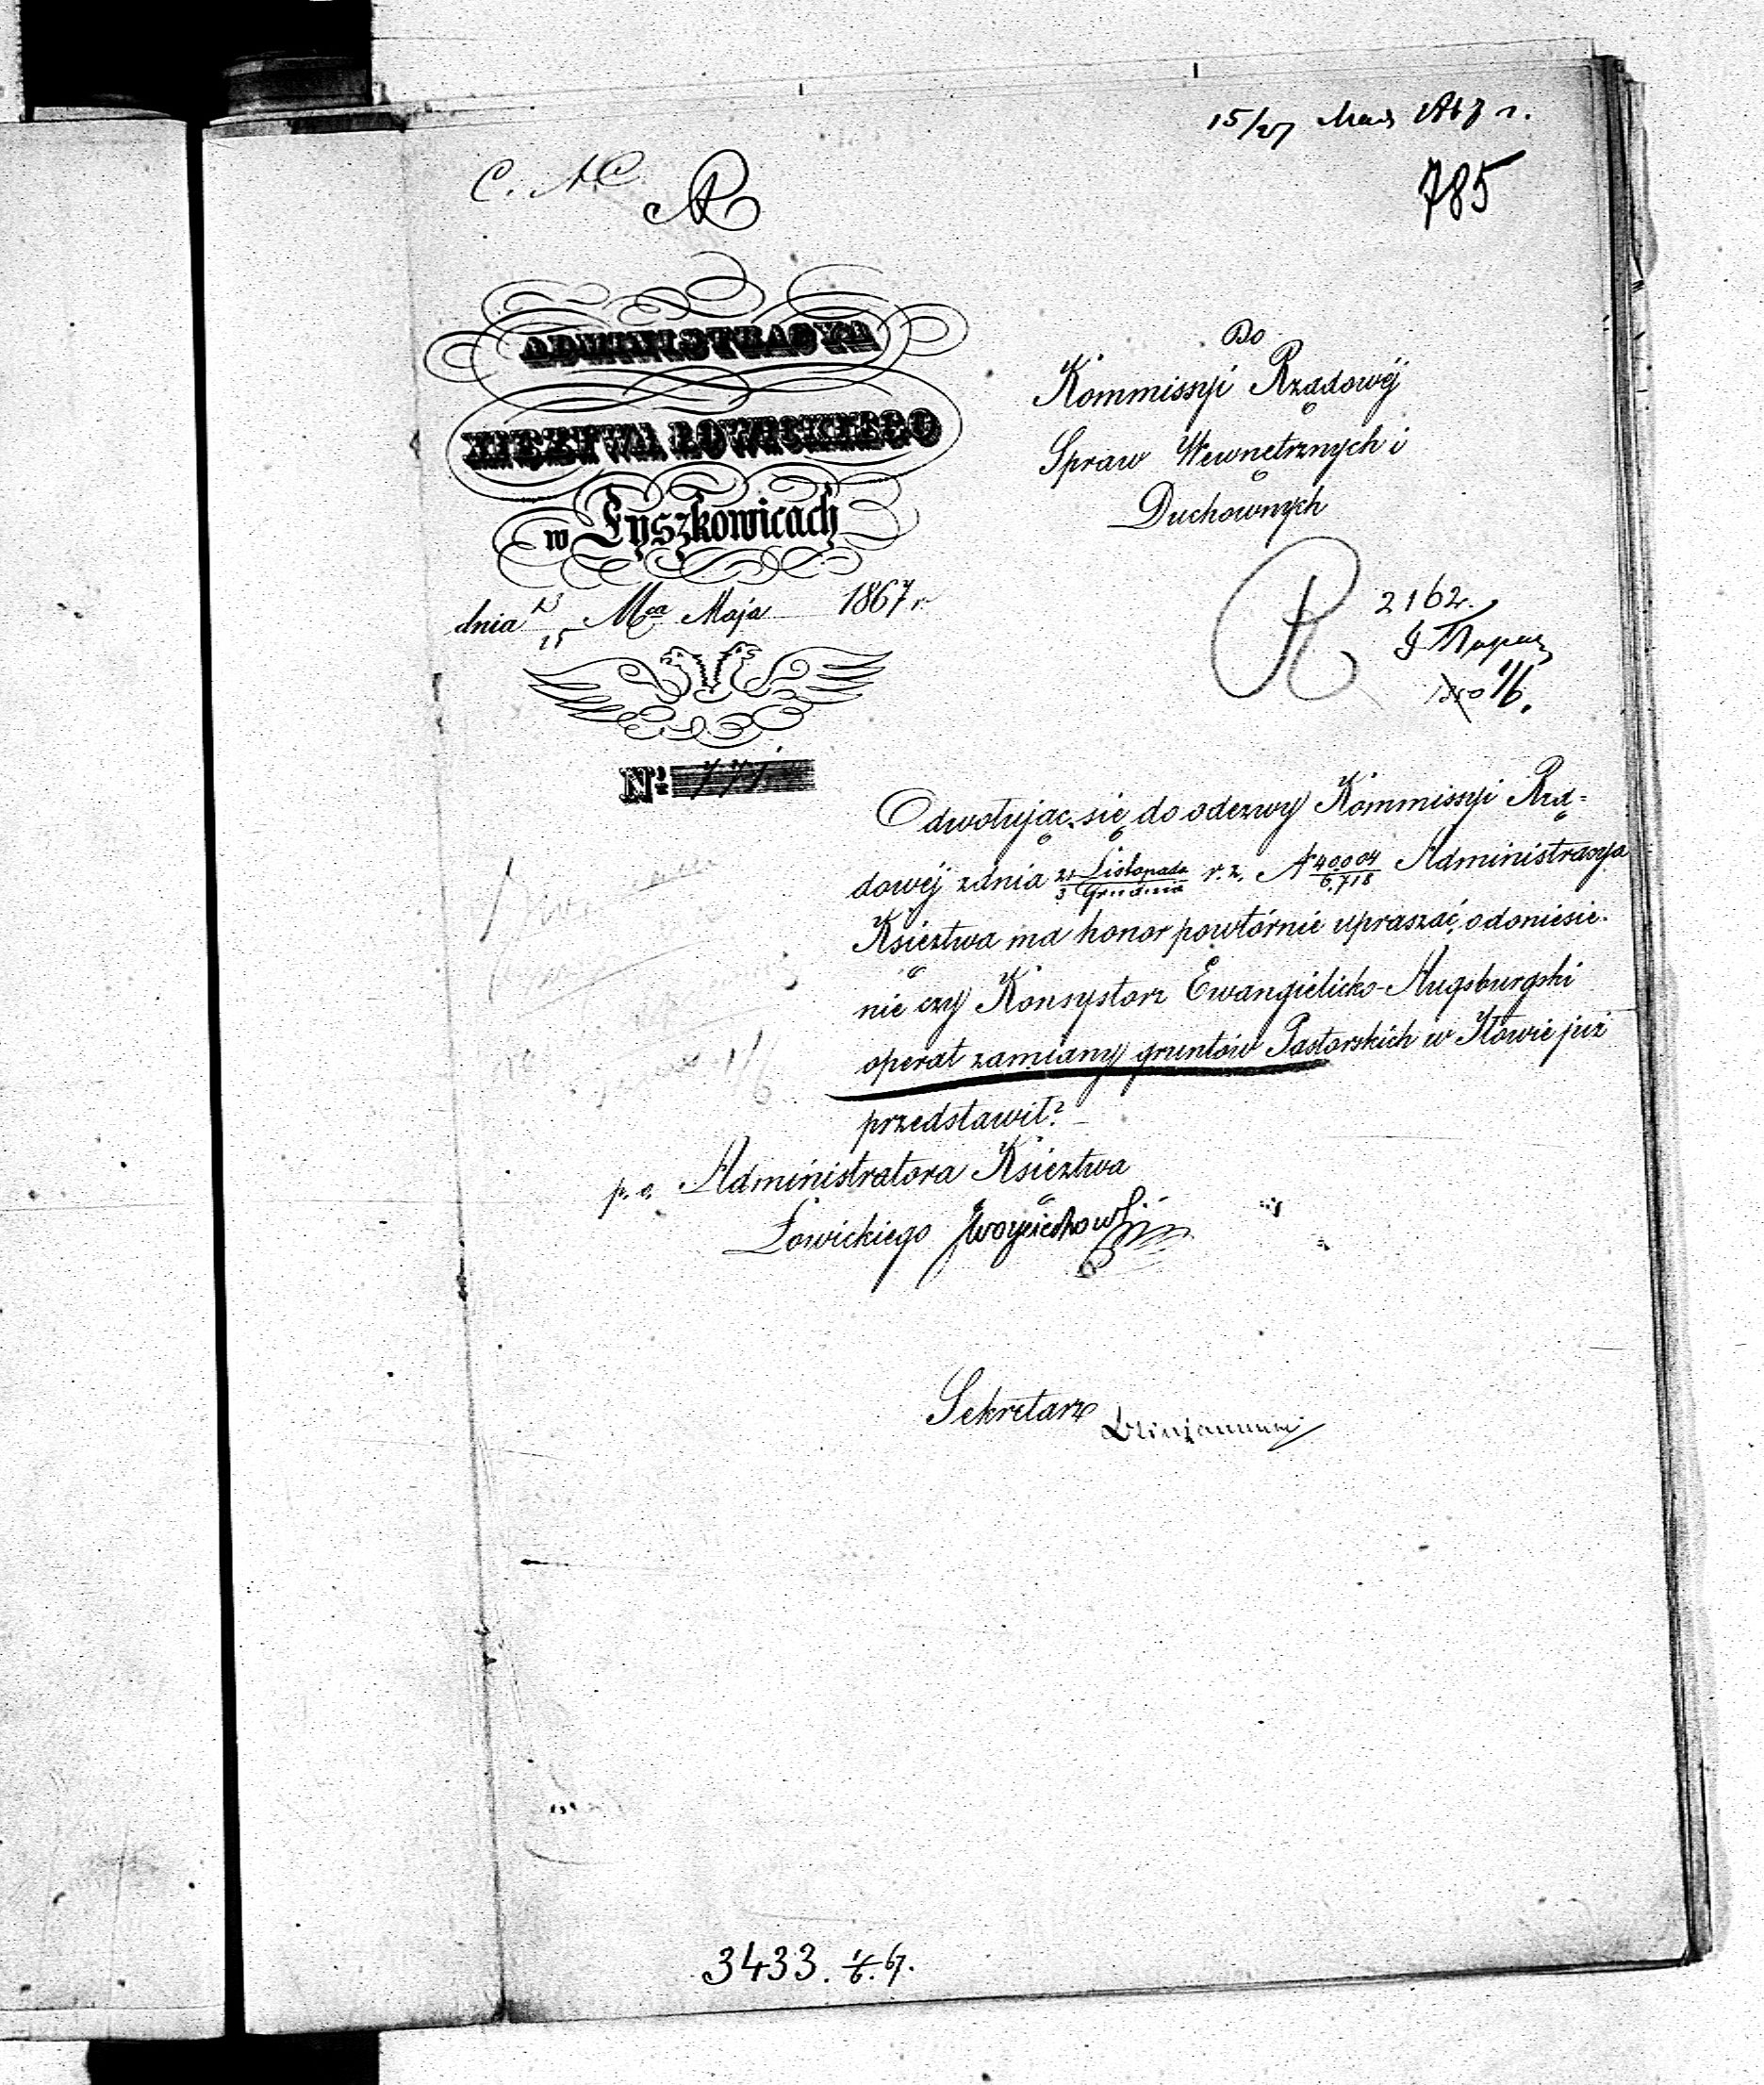 15/27 Мая 1867 г.
785
ADMINISTRACYA
XIĘZTWA ŁOWICKIEGO
w Łyszkowicach
dnia 13/25 Mca Maja 1867 r.
Nr 771.
Do
Kommissyi Rządowéj
Spraw Wewnętrznych i
Duchownych
2162.
1/6.
Odwołując się do odezwy Kommissyi Rzą=
dowéj z dnia 21 Listopada/3 Grudnia r. z. N 40,004/6,718 Administracya
Księztwa ma honor powtórnie upraszać, o doniesie-
nie czy Konsystorz Ewangielicko-Augsburgski
operat zamiany gruntów Pastorskich w Iłowie już
przedstawił?
p. o. Administratora Księztwa
Łowickiego
Sekretarz
3433. 1/6. 67.